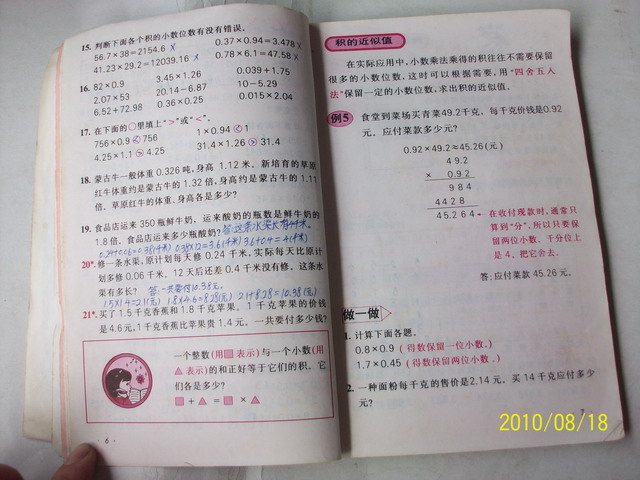 15. 判断下面各个积的小数位数有没有错误。
56.7×38=2154.6 X 0.37×0.94=3.478 X
41.23×29.2=12039.16 X 0.78×6.1=47.58 X
16. 82×0.9 3.45×1.26 0.039+1.75
2.07×53 20.14−6.87 10−5.29
6.52+72.98 0.36×0.25 0.015×2.04
17. 在下面的○里填上“>”或“<”。
756×0.9<756 1×0.94<1
4.25×1.1>4.25 31.4×1.26>31.4
18. 蒙古牛一般体重0.326吨,身高1.12米。新培育的草原
红牛体重约是蒙古牛的1.32倍,身高约是蒙古牛的1.11
倍。草原红牛的体重、身高各是多少?
19. 食品店运来350瓶鲜牛奶,运来酸奶的瓶数是鲜牛奶的
1.8倍。食品店运来多少瓶酸奶? 答:这条水渠长有4千米。
0.24+0.06=0.3(千米) 0.3×12=3.6(千米) 3.6+0.4=4(千米)
20*. 修一条水渠,原计划每天修0.24千米,实际每天比原计
划多修0.06千米,12天后还差0.4千米没有修。这条水
渠有多长? 答:一共要付10.38元。
1.5×1.4=2.1(元) 1.8×4.6=8.28(元) 2.1+8.28=10.38(元)
21*. 买了1.5千克香蕉和1.8千克苹果。1千克苹果的价钱
是4.6元,1千克香蕉比苹果贵1.4元。一共要付多少钱?
一个整数(用■表示)与一个小数(用
▲表示)的和正好等于它们的积。它
们各是多少?
■+▲=■×▲
·6·
积的近似值
在实际应用中,小数乘法乘得的积往往不需要保留
很多的小数位数,这时可以根据需要,用“四舍五入
法”保留一定的小数位数,求出积的近似值。
例5 食堂到菜场买青菜49.2千克,每千克价钱是0.92
元。应付菜款多少元?
0.92×49.2≈45.26(元)
49.2
× 0.92
984
4428
45.264
在收付现款时,通常只
算到“分”,所以只要保
留两位小数。千分位上
是4,把它舍去。
答:应付菜款45.26元。
做一做
1. 计算下面各题。
0.8×0.9(得数保留一位小数。)
1.7×0.45(得数保留两位小数。)
2. 一种面粉每千克的售价是2.14元,买14千克应付多少
元?
7
2010/08/18